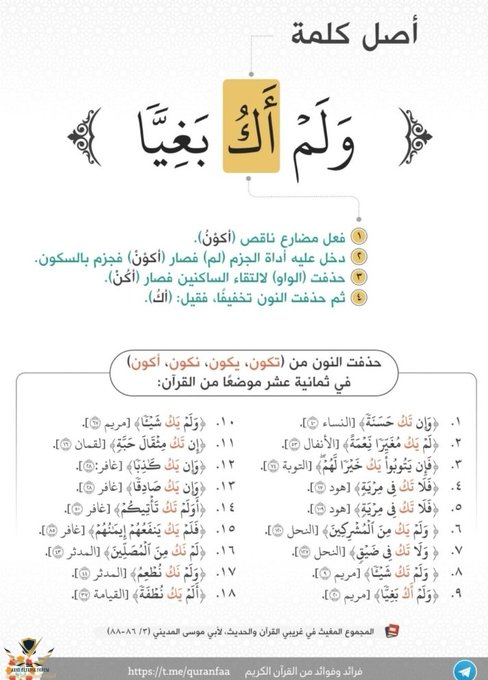 أصل كلمة
وَلَمْ أَكُ بَغِيًّا
١ فعل مضارع ناقص (أكونُ).
٢ دخل عليه أداة الجزم (لم) فصار (أكونْ) فجزم بالسكون.
٣ حذفت (الواو) لالتقاء الساكنين فصار (أكُنْ).
٤ ثم حذفت النون تخفيفًا، فقيل: (أكُ).
حذفت النون من (تكون، يكون، نكون، أكون)
في ثمانية عشر موضعًا من القرآن:
١. ﴿وَإِن تَكُ حَسَنَةً﴾ [النساء].
٢. ﴿لَمْ يَكُ مُغَيِّرًا نِّعْمَةً﴾ [الأنفال].
٣. ﴿فَإِن يَتُوبُواْ يَكُ خَيْرًا لَّهُمْ﴾ [التوبة].
٤. ﴿فَلَا تَكُ فِى مِرْيَةٍ﴾ [هود].
٥. ﴿فَلَا تَكُ فِى مِرْيَةٍ﴾ [هود].
٦. ﴿وَلَمْ يَكُ مِنَ ٱلْمُشْرِكِينَ﴾ [النحل].
٧. ﴿وَلَا تَكُ فِى ضَيْقٍ﴾ [النحل].
٨. ﴿وَلَمْ تَكُ شَيْـًٔا﴾ [مريم].
٩. ﴿وَلَمْ أَكُ بَغِيًّا﴾ [مريم].
١٠. ﴿وَلَمْ يَكُ شَيْـًٔا﴾ [مريم].
١١. ﴿إِن تَكُ مِثْقَالَ حَبَّةٍ﴾ [لقمان].
١٢. ﴿وَإِن يَكُ كَٰذِبًا﴾ [غافر].
١٣. ﴿وَإِن يَكُ صَادِقًا﴾ [غافر].
١٤. ﴿أَوَلَمْ تَكُ تَأْتِيكُمْ﴾ [غافر].
١٥. ﴿فَلَمْ يَكُ يَنفَعُهُمْ إِيمَٰنُهُمْ﴾ [غافر].
١٦. ﴿لَمْ نَكُ مِنَ ٱلْمُصَلِّينَ﴾ [المدثر].
١٧. ﴿وَلَمْ نَكُ نُطْعِمُ﴾ [المدثر].
١٨. ﴿أَلَمْ يَكُ نُطْفَةً﴾ [القيامة].
المجموع المغيث في غريبي القرآن والحديث، لأبي موسى المديني (٣/ ٨٦-٨٨)
فرائد وفوائد من القرآن الكريم https://t.me/quranfaa